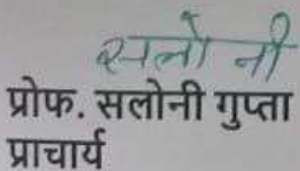 सलोनी
प्रोफ. सलोनी गुप्ता
प्राचार्य